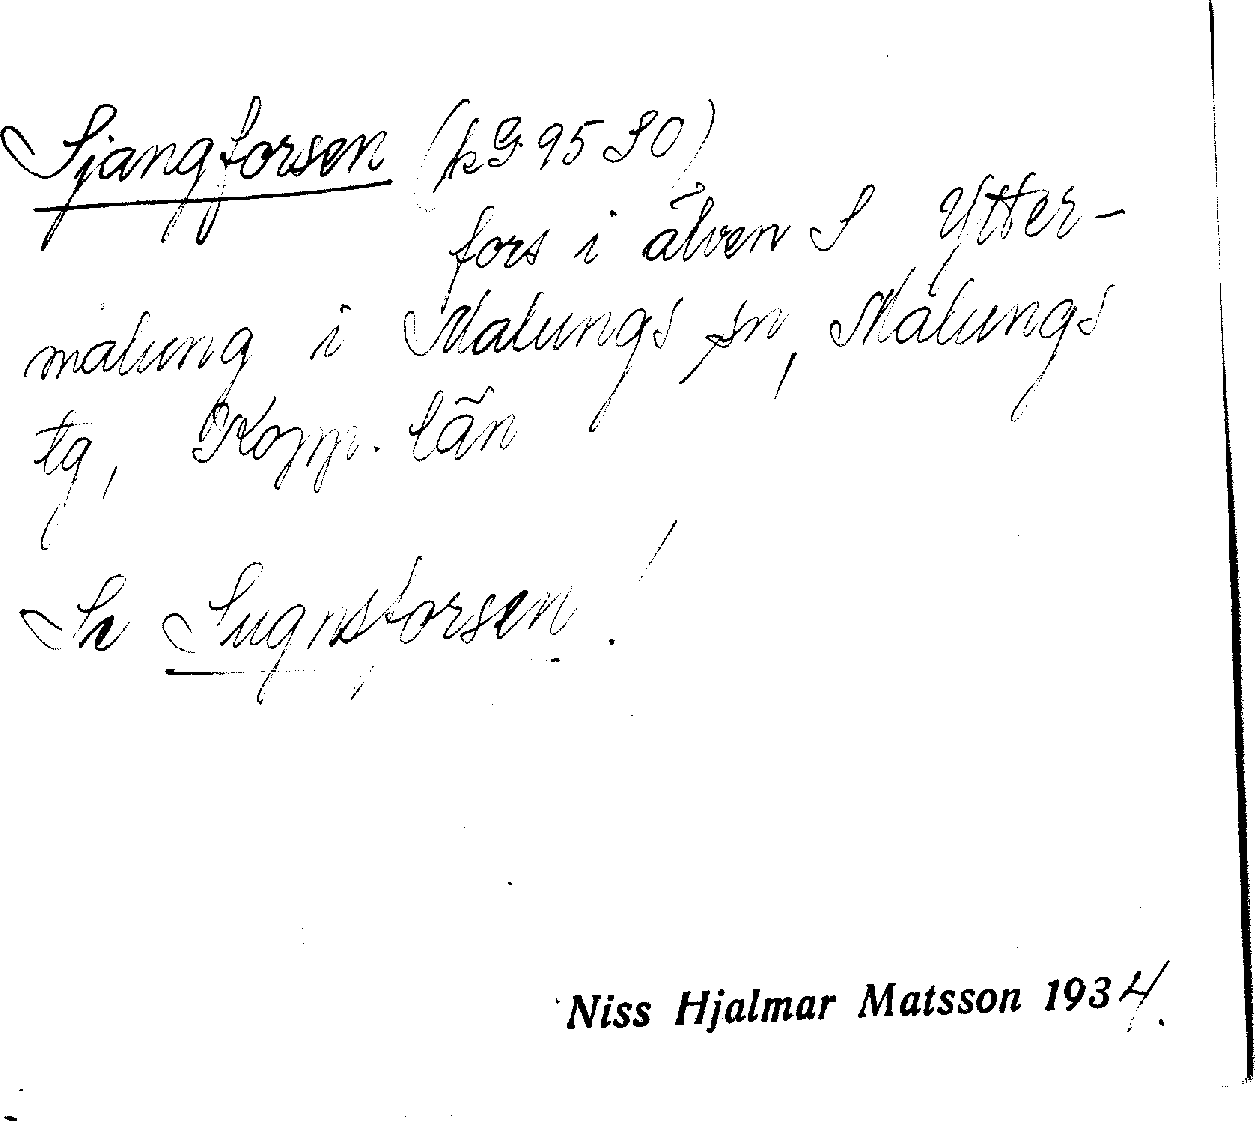 Sjangforsen (kG 95 SO)
fors i älven S Ytter-
malung i Malungs sn, Malungs
tg, Kopp. län
Se Sugnsforsen!
Niss Hjalmar Matsson 1934.